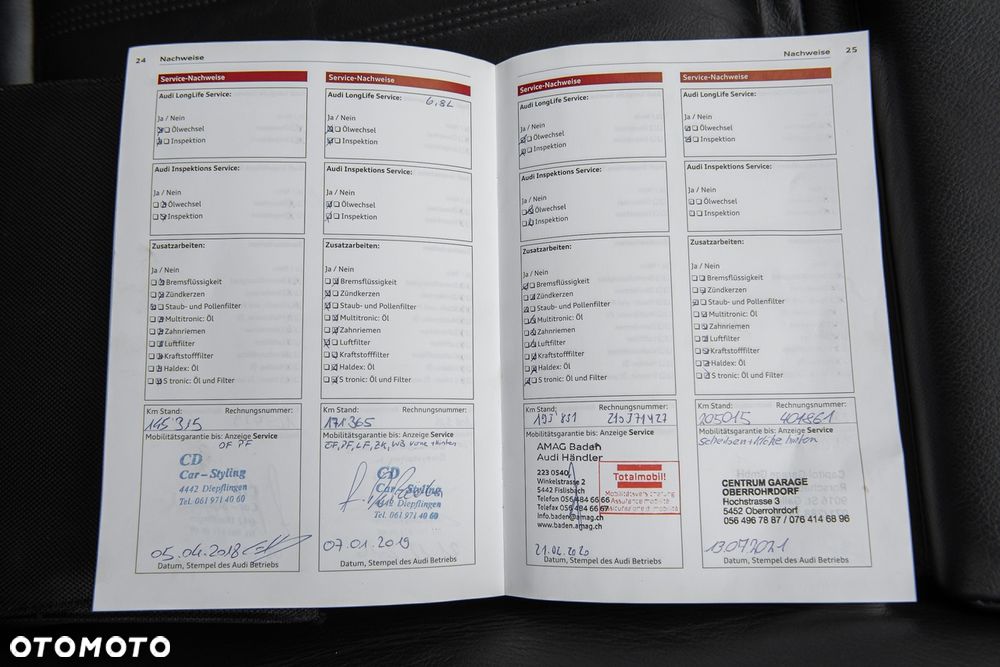 24 Nachweise
Service-Nachweise
Audi LongLife Service:
Ja / Nein
Ölwechsel
Inspektion
Audi Inspektions Service:
Ja / Nein
Ölwechsel
Inspektion
Zusatzarbeiten:
Ja / Nein
Bremsflüssigkeit
Zündkerzen
Staub- und Pollenfilter
Multitronic: Öl
Zahnriemen
Luftfilter
Kraftstofffilter
Haldex: Öl
S tronic: Öl und Filter
Km Stand: Rechnungsnummer:
145'315
Mobilitätsgarantie bis: Anzeige Service
OF PF
CD
Car-Styling
4442 Diepflingen
Tel. 061 971 40 60
05.04.2018
Datum, Stempel des Audi Betriebs
Service-Nachweise
Audi LongLife Service:
6,8L
Ja / Nein
Ölwechsel
Inspektion
Audi Inspektions Service:
Ja / Nein
Ölwechsel
Inspektion
Zusatzarbeiten:
Ja / Nein
Bremsflüssigkeit
Zündkerzen
Staub- und Pollenfilter
Multitronic: Öl
Zahnriemen
Luftfilter
Kraftstofffilter
Haldex: Öl
S tronic: Öl und Filter
Km Stand: Rechnungsnummer:
171'365
Mobilitätsgarantie bis: Anzeige Service
OF, PF, LF, ZK, WB
CD
Car-Styling
4442 Diepflingen
Tel. 061 971 40 60
07.01.2019
Datum, Stempel des Audi Betriebs
Nachweise 25
Service-Nachweise
Audi LongLife Service:
Ja / Nein
Ölwechsel
Inspektion
Audi Inspektions Service:
Ja / Nein
Ölwechsel
Inspektion
Zusatzarbeiten:
Ja / Nein
Bremsflüssigkeit
Zündkerzen
Staub- und Pollenfilter
Multitronic: Öl
Zahnriemen
Luftfilter
Kraftstofffilter
Haldex: Öl
S tronic: Öl und Filter
Km Stand: Rechnungsnummer:
193'831 210371427
Mobilitätsgarantie bis: Anzeige Service
AMAG Baden
Audi Händler
223 0540
Winkelstrasse 2
5442 Fislisbach
Telefon 056 484 66 66
Telefax 056 484 66 67
Info.baden@amag.ch
www.baden.amag.ch
Totalmobil!
Mobilitätsversicherung
Assurance mobilité
Assicurazione di mobilità
21.02.2020
Datum, Stempel des Audi Betriebs
Service-Nachweise
Audi LongLife Service:
Ja / Nein
Ölwechsel
Inspektion
Audi Inspektions Service:
Ja / Nein
Ölwechsel
Inspektion
Zusatzarbeiten:
Ja / Nein
Bremsflüssigkeit
Zündkerzen
Staub- und Pollenfilter
Multitronic: Öl
Zahnriemen
Luftfilter
Kraftstofffilter
Haldex: Öl
S tronic: Öl und Filter
Km Stand: Rechnungsnummer:
205015 401861
Mobilitätsgarantie bis: Anzeige Service
Scheiben + Klötze hinten
CENTRUM GARAGE
OBERROHRDORF
Hochstrasse 3
5452 Oberrohrdorf
056 496 78 87 / 076 414 68 96
13.07.2021
Datum, Stempel des Audi Betriebs
OTOMOTO